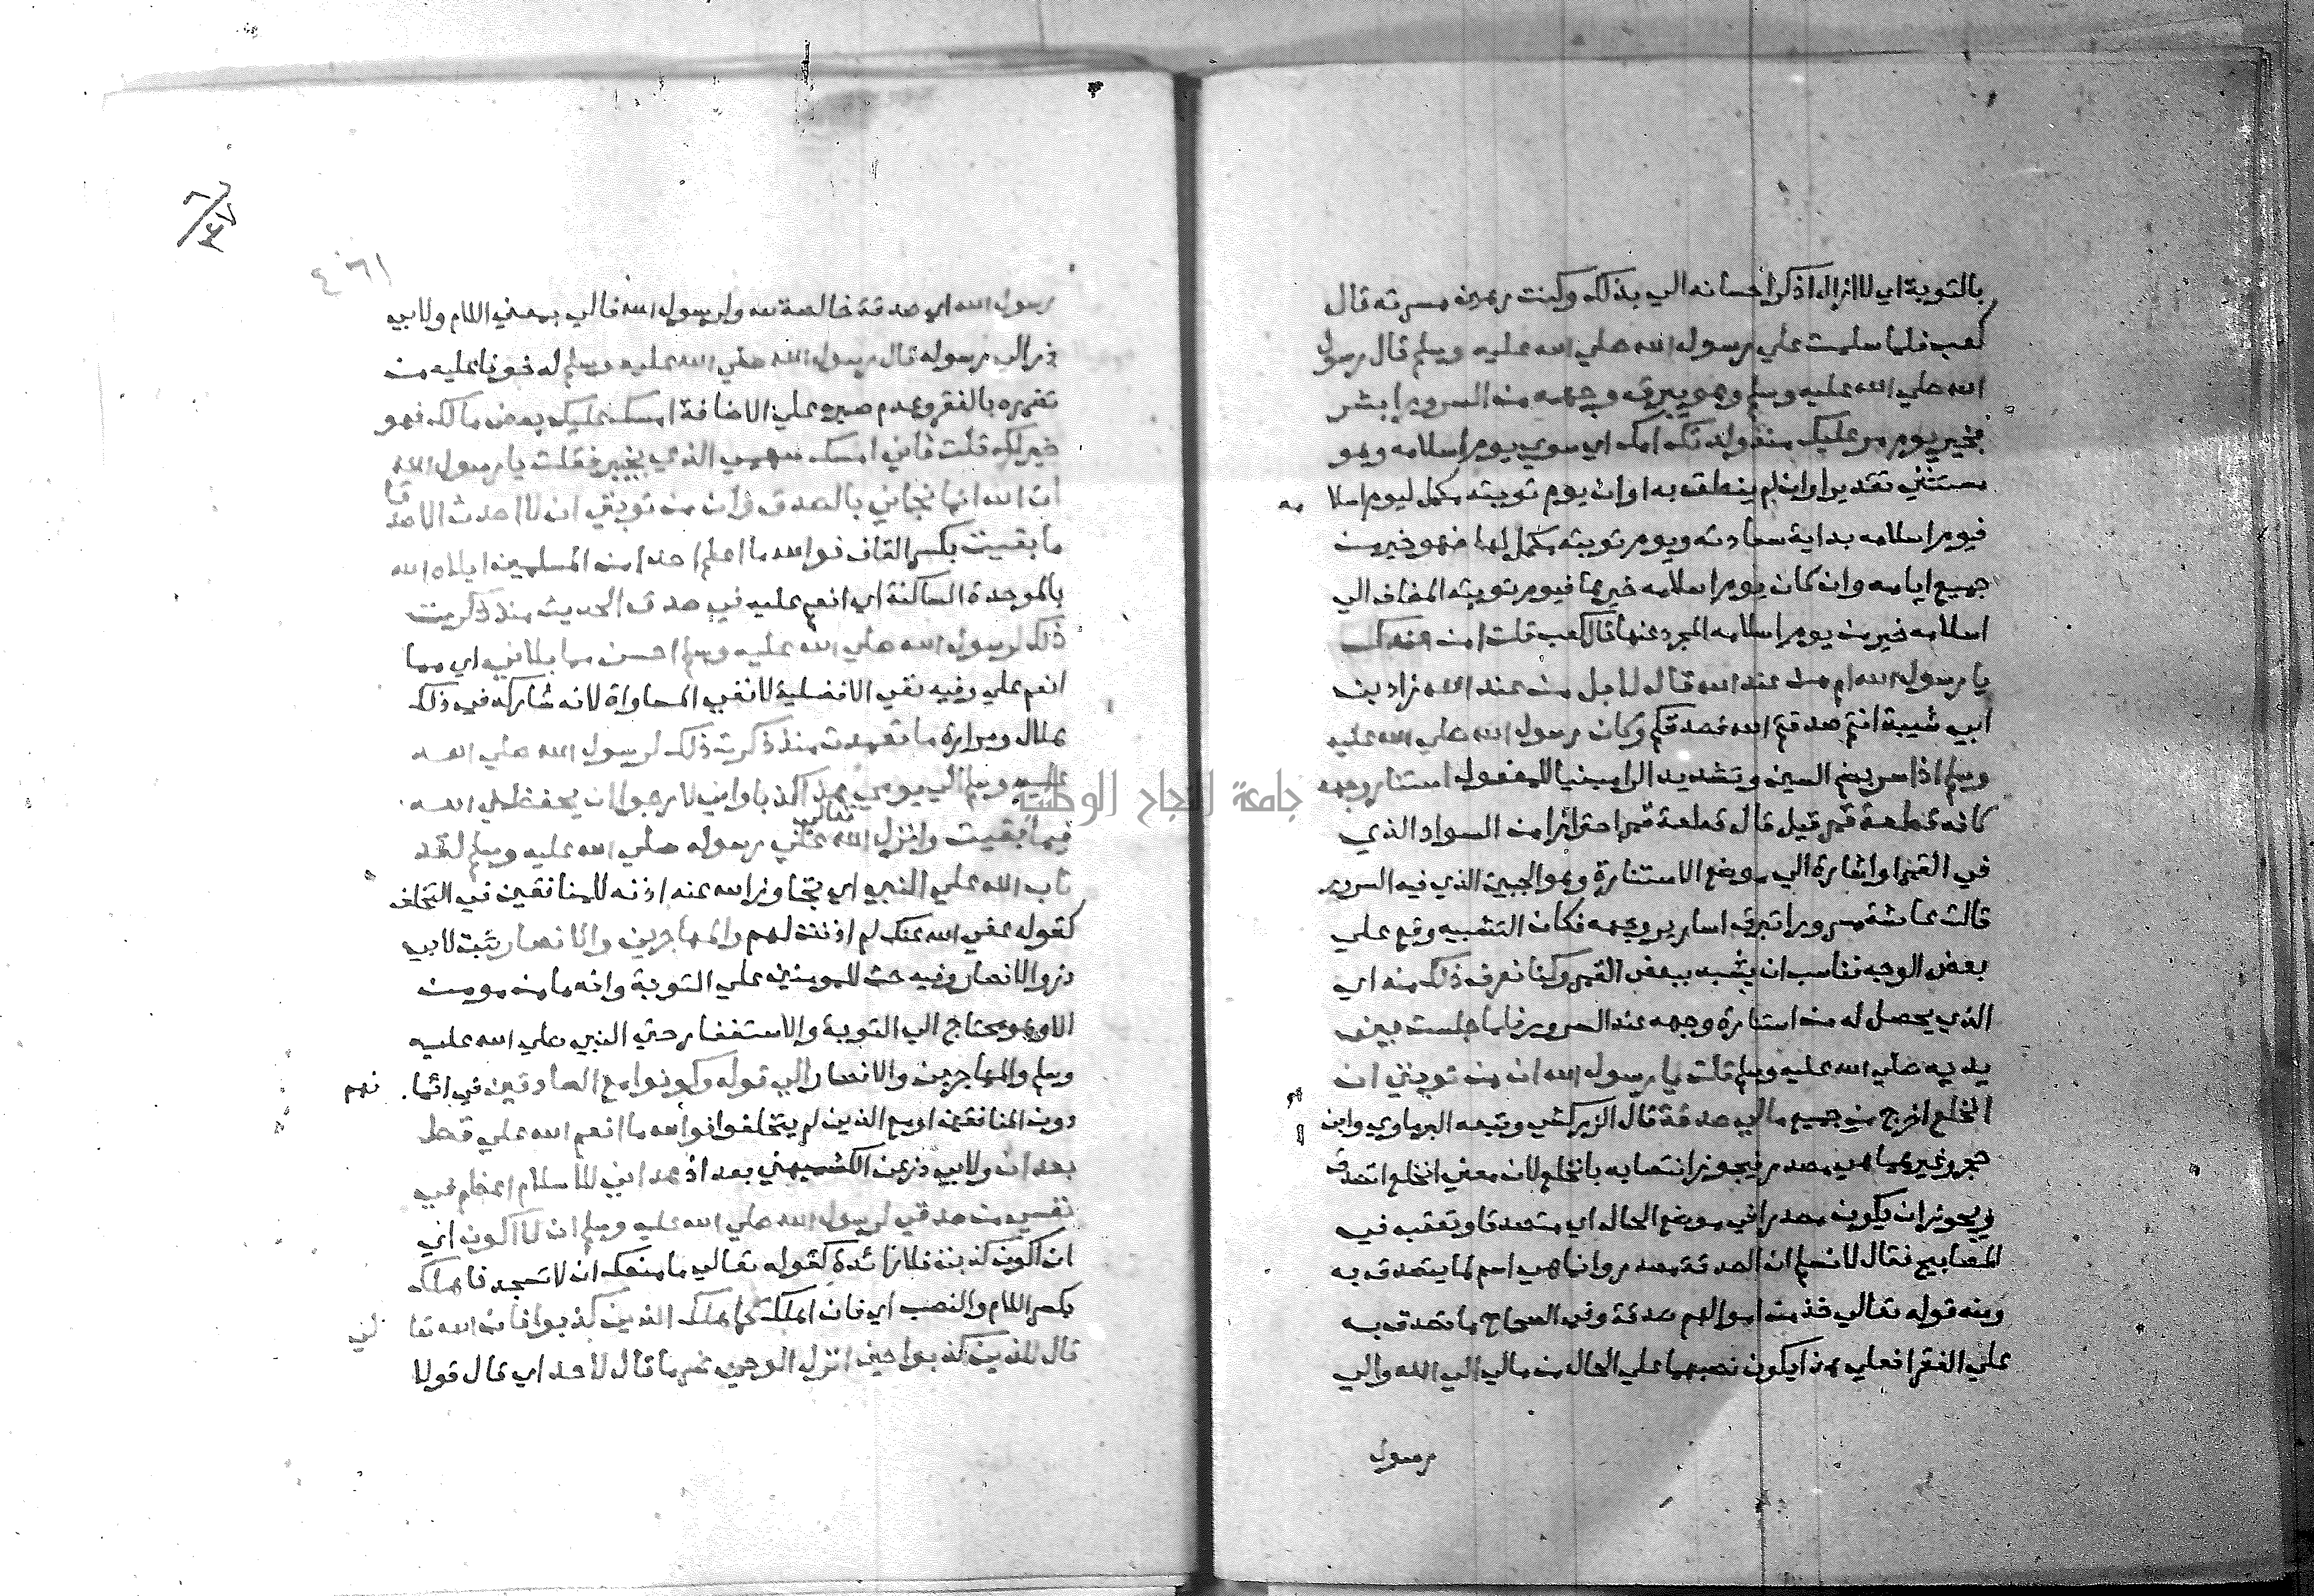 بالتوبة اي لا ازال اذكر احسانه الي بذلك وكنت رهين مسرته قال
كعب فلما سلمت علي رسول الله صلي الله عليه وسلم قال رسول
الله صلي الله عليه وسلم وهو يبرق وجهه من السرور ابشر
بخير يوم مر عليك منذ ولدتك امك اي سوي يوم اسلامه وهو
مستثني تقديرا وان لم ينطق به او ان يوم توبته مكمل ليوم اسلا مه
فيوم اسلامه بداية سعادته ويوم توبته مكمل لها فهو خير من
جميع ايامه وان كان يوم اسلامه خيرها فيوم توبته المضاف الي
اسلامه خير من يوم اسلامه المجرد عنها قال كعب قلت امن عندك
يا رسول الله ام من عند الله قال لا بل من عند الله زاد بن
ابي شيبة انتم صدقتم الله فصدقكم وكان رسول الله صلي الله عليه
وسلم اذا سر بضم السين وتشديد الرا مبنيا للمفعول استنار وجهه
كانه قطعة قمر قيل قال قطعة قمر احترازا من السواد الذي
في القمر او اشارة الي موضع الاستنارة وهو الجبين الذي فيه السرور
قالت عائشة مسرورا تبرق اسارير وجهه فكان التشبيه وقع علي
بعض الوجه فناسب ان يشبه ببعض القمر وكنا نعرف ذلك منه اي
الذي يحصل له من استنارة وجهه عند السرور فلما جلست بين
يديه صلي الله عليه وسلم قلت يا رسول الله ان من توبتي ان
انخلع اخرج من جميع مالي صدقة قال الزركشي وتبعه البرماوي وابن
حجر وغيرهما هي مصدر فيجوز انتصابه بانخلع لان معني انخلع اتصدق
ويجوز ان يكون مصدرا في موضع الحال اي متصدقا وتعقبه في
المصابيح فقال لا نسلم ان الصدقة مصدر وانما هي اسم لما يتصدق به
ومنه قوله تعالي خذ من اموالهم صدقة وفي الصحاح ما تصدق به
علي الفقرا فعلي هذا يكون نصبها علي الحال من مالي الي الله والي
رسول
رسول الله اي صدقة خالصة لله ولرسول الله فالي بمعني اللام ولابي
ذر الي رسوله قال رسول الله صلي الله عليه وسلم له خوفا عليه من
تضرره بالفقر وعدم صبره علي الاضافة امسك عليك بعض مالك فهو
خير لك قلت فاني امسك سهمي الذي بخيبر فقلت يا رسول الله
ان الله انما نجاني بالصدق وان من توبتي ان لا احدث الا صدقا
ما بقيت بكسر القاف فوالله ما اعلم احدا من المسلمين ابلاه الله
بالموحدة الساكنة اي انعم عليه في صدق الحديث منذ ذكرت
ذلك لرسول الله صلي الله عليه وسلم احسن مما بلاني اي مما
انعم علي وفيه نفي الافضلية لا نفي المساواة لانه شاركه في ذلك
هلال ومرارة ما تعمدت منذ ذكرت ذلك لرسول الله صلي الله
عليه وسلم الي يومي هذا كذبا واني لارجو ان يحفظني الله
فيما بقيت وانزل الله تعالي علي رسوله صلي الله عليه وسلم لقد
تاب الله علي النبي اي تجاوز الله عنه اذنه للمنافقين في التخلف
كقوله عفي الله عنك لم اذنت لهم والمهاجرين والانصار ثبت لابي
ذر والانصار وفيه حث للمومنين علي التوبة وانه ما من مومن
الا وهو محتاج الي التوبة والاستغفار حتي النبي صلي الله عليه
وسلم والمهاجرين والانصار الي قوله وكونوا مع الصادقين في ايما نهم
دون المنافقين او مع الذين لم يتخلفوا فوالله ما انعم الله علي قط
بعد ان ولابي ذر عن الكشميهني بعد اذ هداني للاسلام اعظم في
نفسي من صدقي لرسول الله صلي الله عليه وسلم ان لا اكون اي
ان اكون كذبته فلا زائدة كقوله تعالي ما منعك ان لا تسجد فاهلك
بكسر اللام والنصب اي فان اهلك كما هلك الذين كذبوا فان الله تعا لي
قال للذين كذبوا حين انزل الوحي شر ما قال لاحد اي قال قولا
جامعة النجاح الوطنية